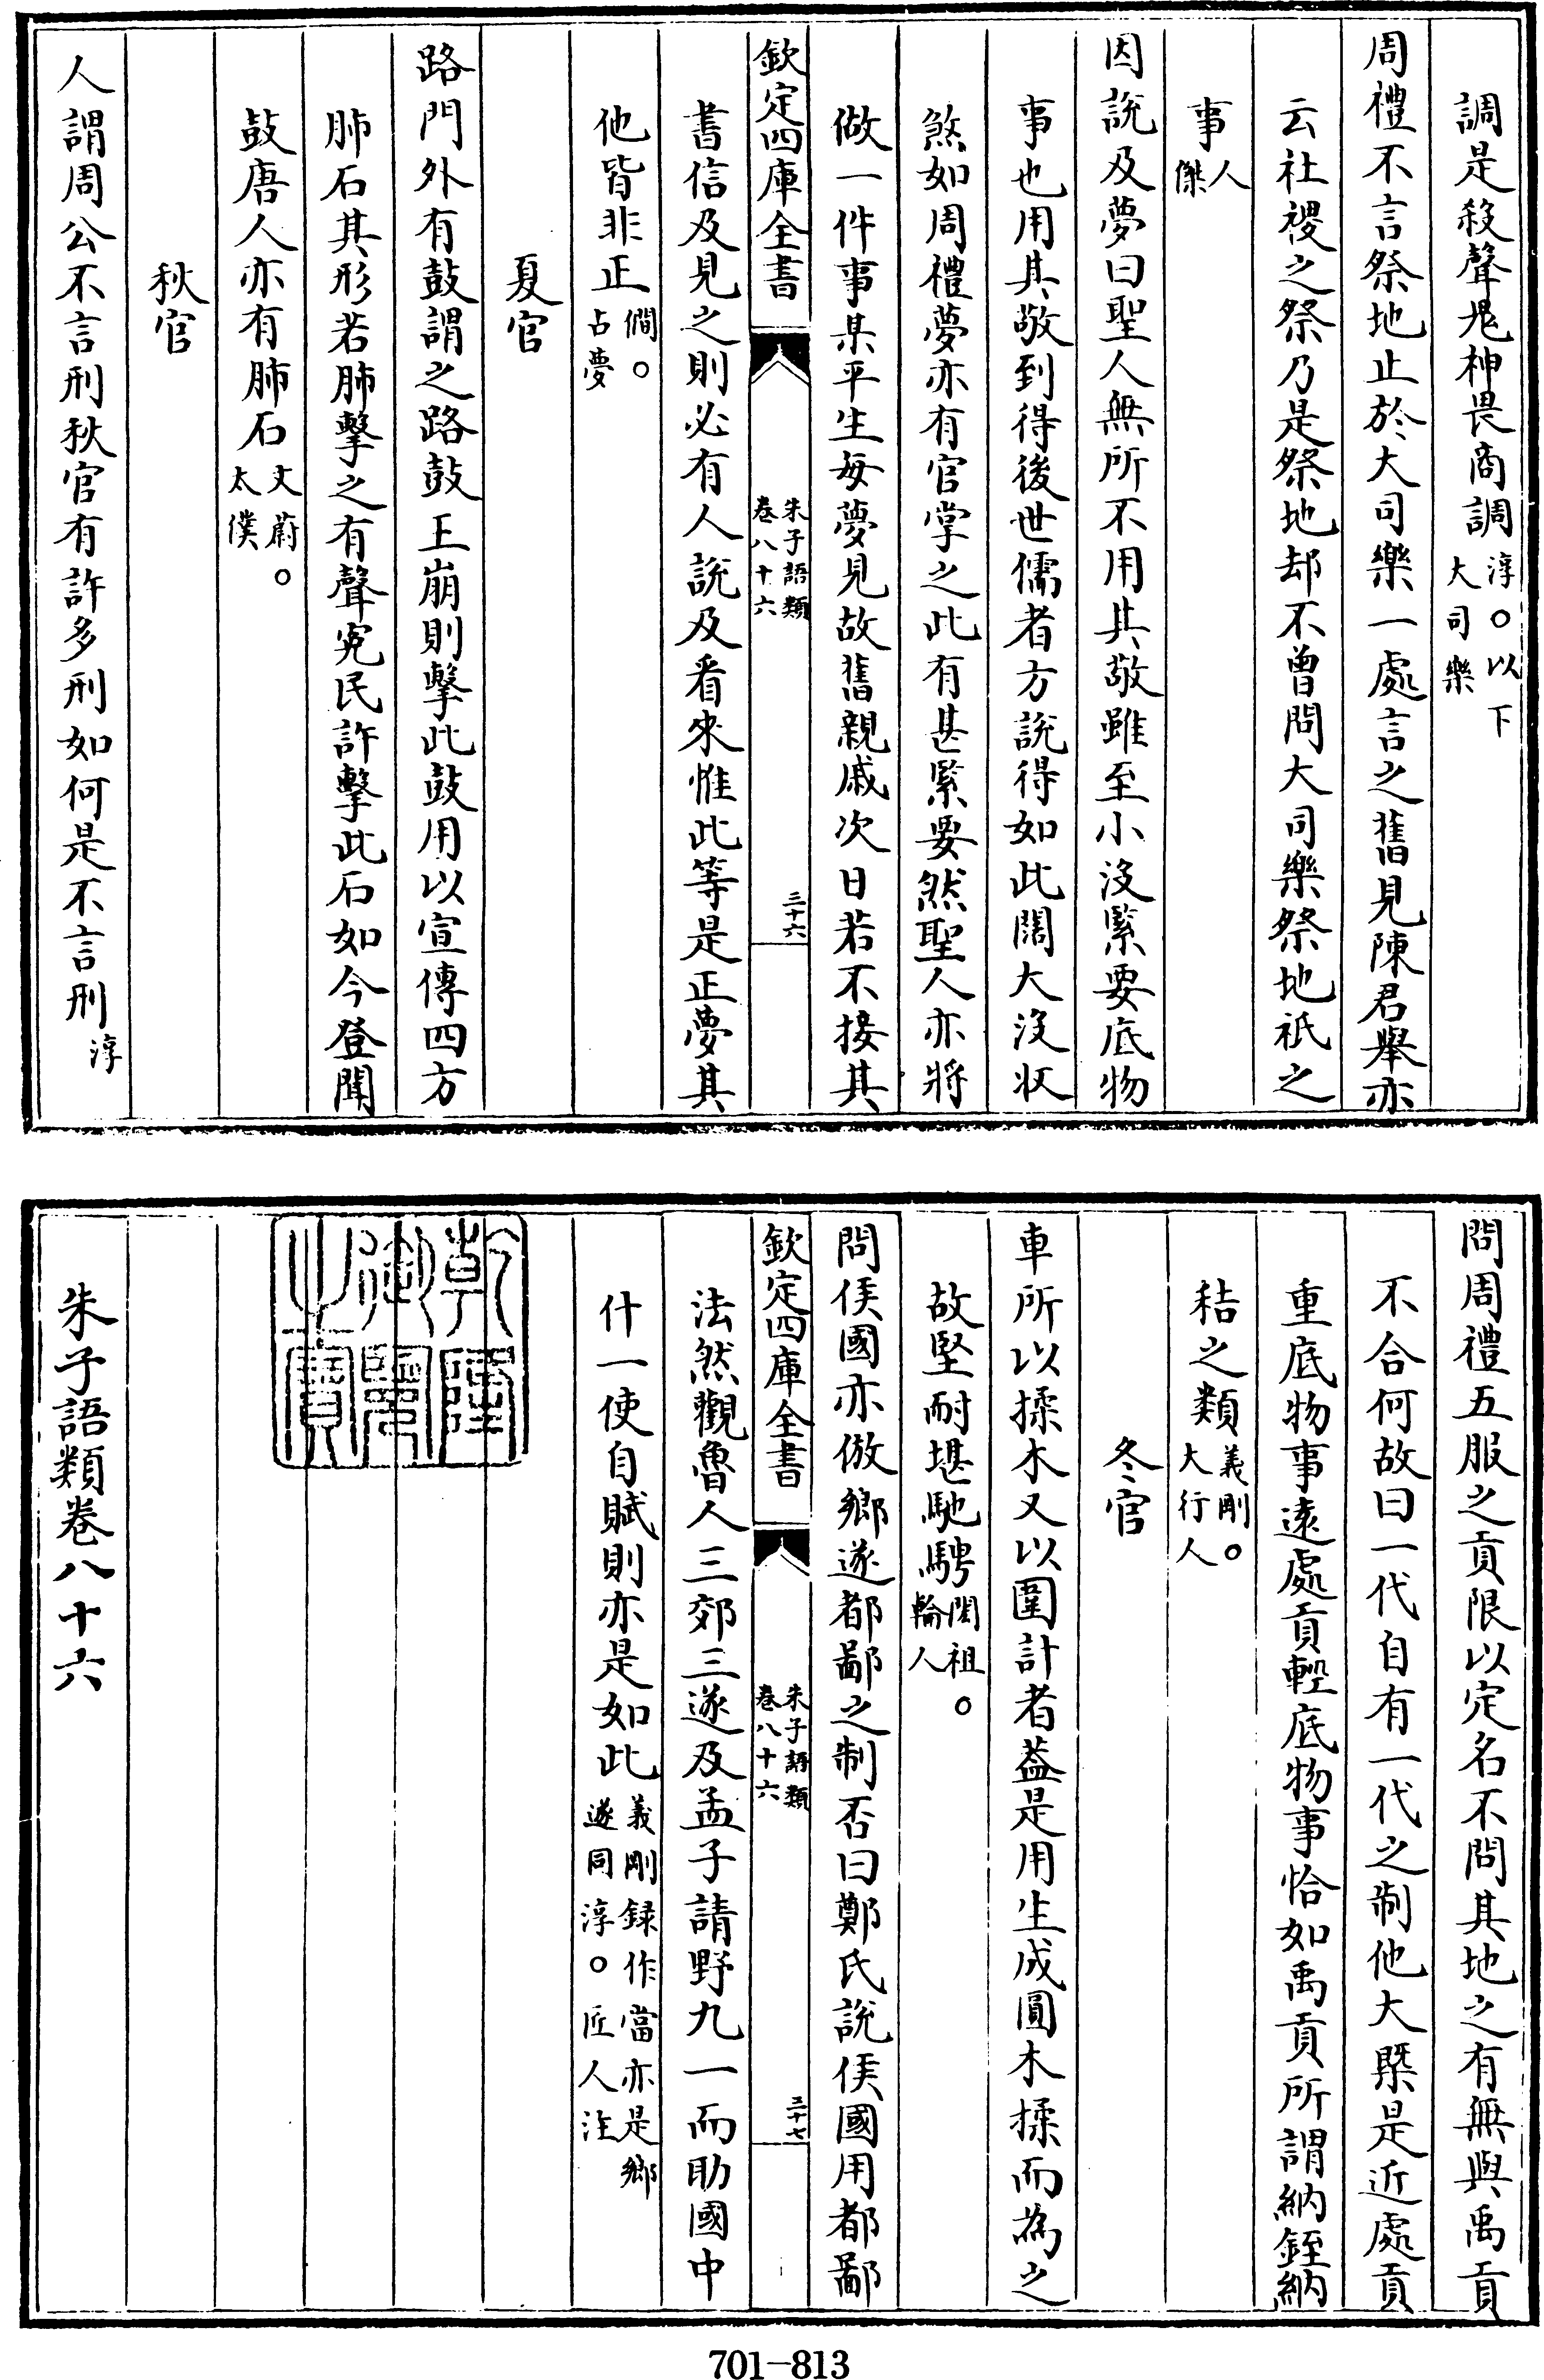 調是殺聲鬼神畏商調淳○以下大司樂
周禮不言祭地止於大司樂一處言之舊見陳君舉亦
云社稷之祭乃是祭地却不曾問大司樂祭地祇之
事人傑
因說及夢曰聖人無所不用其敬雖至小沒緊要底物
事也用其敬到得後世儒者方說得如此闊大沒收
煞如周禮夢亦有官掌之此有甚緊要然聖人亦將
做一件事某平生每夢見故舊親戚次日若不接其
欽定四庫全書
朱子語類
卷八十六
三十六
書信及見之則必有人說及看來惟此等是正夢其
他皆非正僩○占夢
夏官
路門外有鼓謂之路鼓王崩則擊此鼓用以宣傳四方
肺石其形若肺擊之有聲寃民許擊此石如今登聞
鼓唐人亦有肺石文蔚○太僕
秋官
人謂周公不言刑秋官有許多刑如何是不言刑淳
問周禮五服之貢限以定名不問其地之有無與禹貢
不合何故曰一代自有一代之制他大槩是近處貢
重底物事遠處貢輕底物事恰如禹貢所謂納銍納
秸之類義剛○大行人
冬官
車所以揉木又以圍計者蓋是用生成圓木揉而為之
故堅耐堪馳騁閎祖○輪人
問侯國亦倣鄉遂都鄙之制否曰鄭氏說侯國用都鄙
欽定四庫全書
朱子語類
卷八十六
三十七
法然觀魯人三郊三遂及孟子請野九一而助國中
什一使自賦則亦是如此義剛録作當亦是鄉遂同淳○匠人注
乾隆御覽之寶
朱子語類卷八十六
701-813